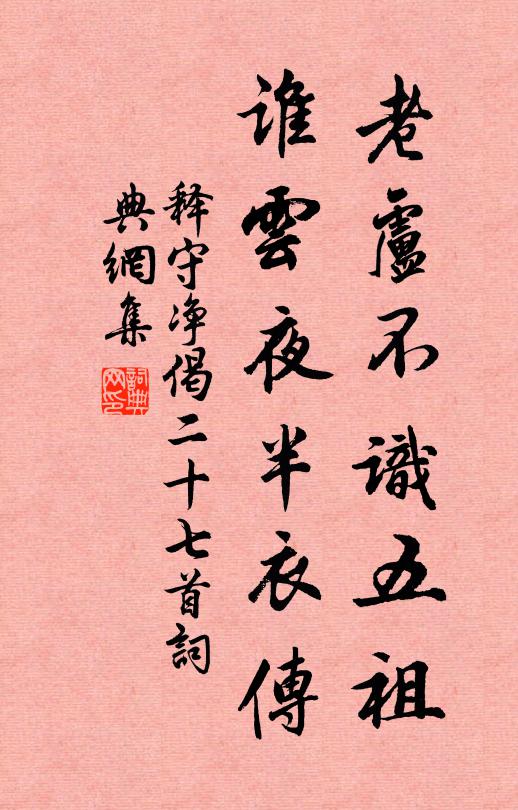 老盧不識五祖
誰雲夜半衣傳
释守净偈二十七首詞
典網集
詞典网印